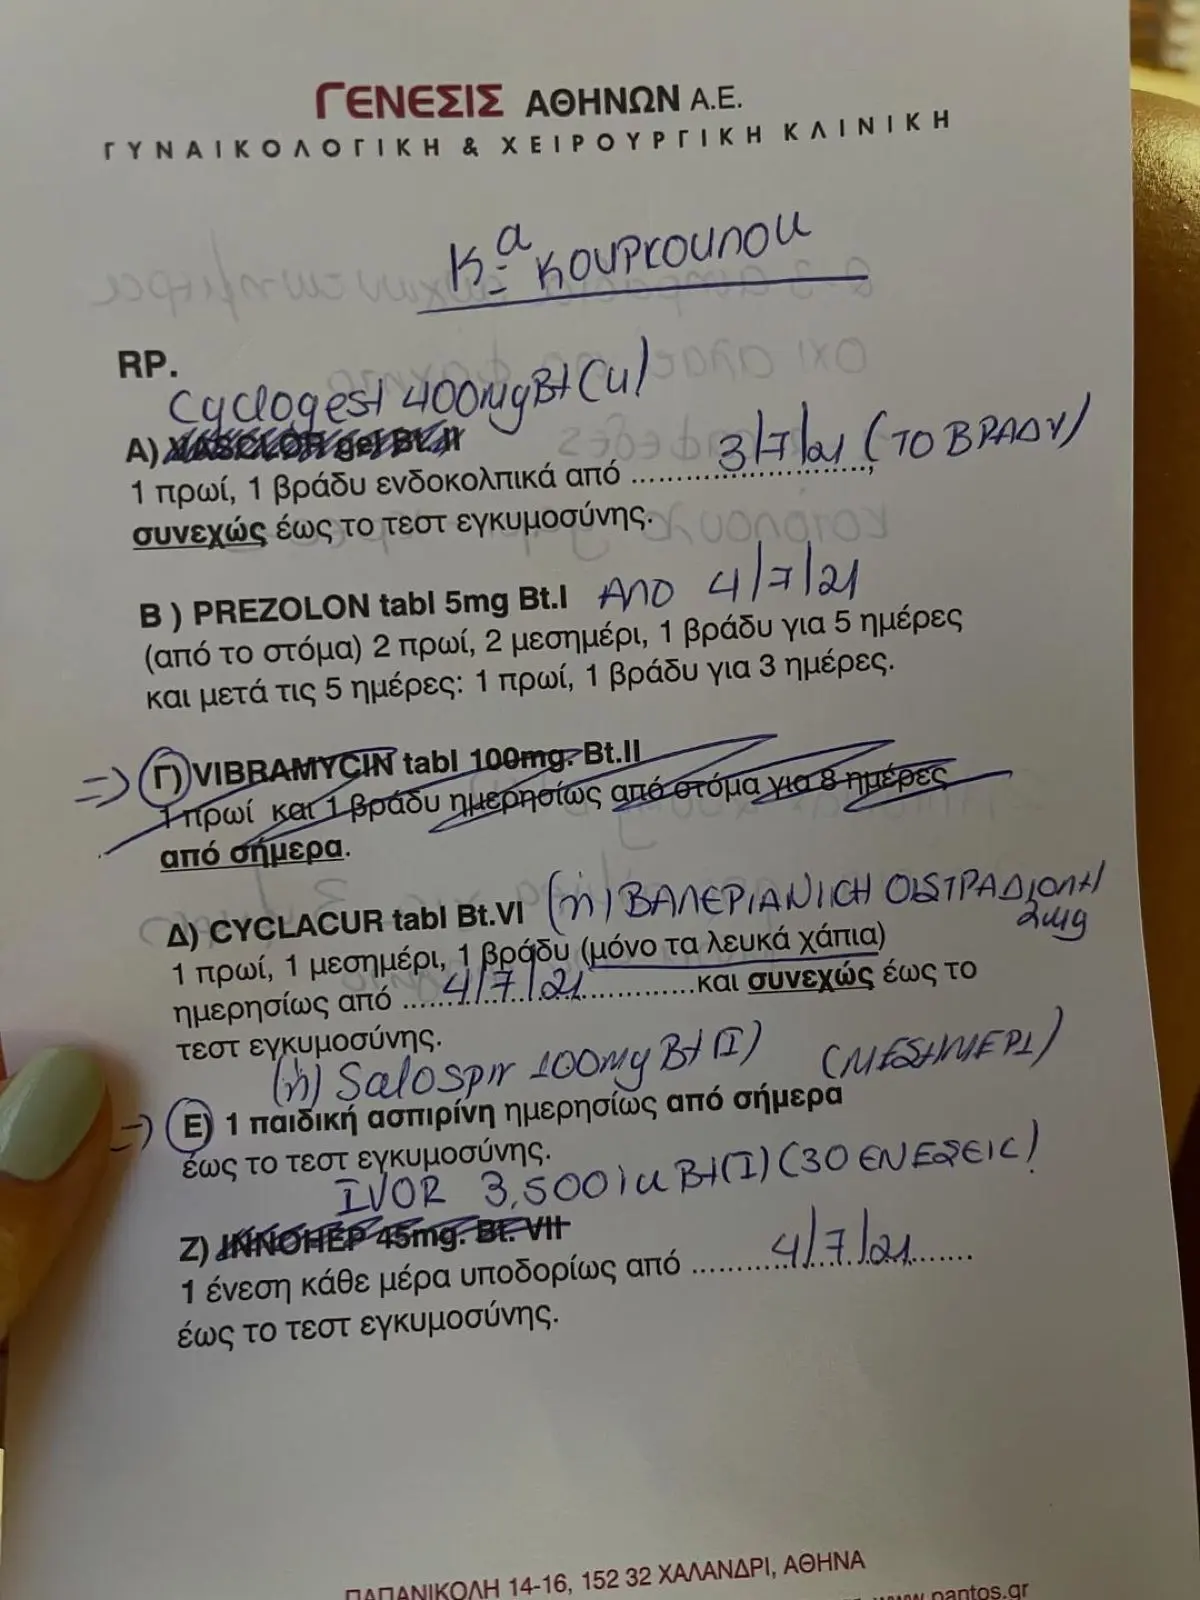 ΓΕΝΕΣΙΣ ΑΘΗΝΩΝ Α.Ε.
ΓΥΝΑΙΚΟΛΟΓΙΚΗ & ΧΕΙΡΟΥΡΓΙΚΗ ΚΛΙΝΙΚΗ
Κα
RP.
Cyclogest 400mg Bt
Α) VASCLOR gel Bt.II
3/7/21 (ΤΟ ΒΡΑΔΥ)
1 πρωί, 1 βράδυ ενδοκολπικά από
συνεχώς έως το τεστ εγκυμοσύνης.
Β ) PREZOLON tabl 5mg Bt.I ΑΠΟ 4/7/21
(από το στόμα) 2 πρωί, 2 μεσημέρι, 1 βράδυ για 5 ημέρες
και μετά τις 5 ημέρες: 1 πρωί, 1 βράδυ για 3 ημέρες.
=> Γ) VIBRAMYCIN tabl 100mg. Bt.II
1 πρωί και 1 βράδυ ημερησίως από στόμα για 8 ημέρες
από σήμερα.
Δ) CYCLACUR tabl Bt.VI (ή) ΒΑΛΕΡΙΑΝΙΚΗ ΟΙΣΤΡΑΔΙΟΛΗ
2mg
1 πρωί, 1 μεσημέρι, 1 βράδυ (μόνο τα λευκά χάπια)
ημερησίως από 4/7/21 και συνεχώς έως το
τεστ εγκυμοσύνης.
(ή) Salospir 100mg Bt (I) (ΜΕΣΗΜΕΡΙ)
=> Ε) 1 παιδική ασπιρίνη ημερησίως από σήμερα
έως το τεστ εγκυμοσύνης.
IVOR 3,500iu Bt(I) (30 ΕΝΕΣΕΙΣ)
Ζ) INNOHEP 45mg. Bt. VII
1 ένεση κάθε μέρα υποδορίως από 4/7/21
έως το τεστ εγκυμοσύνης.
ΠΑΠΑΝΙΚΟΛΗ 14-16, 152 32 ΧΑΛΑΝΔΡΙ, ΑΘΗΝΑ
www.pantos.gr